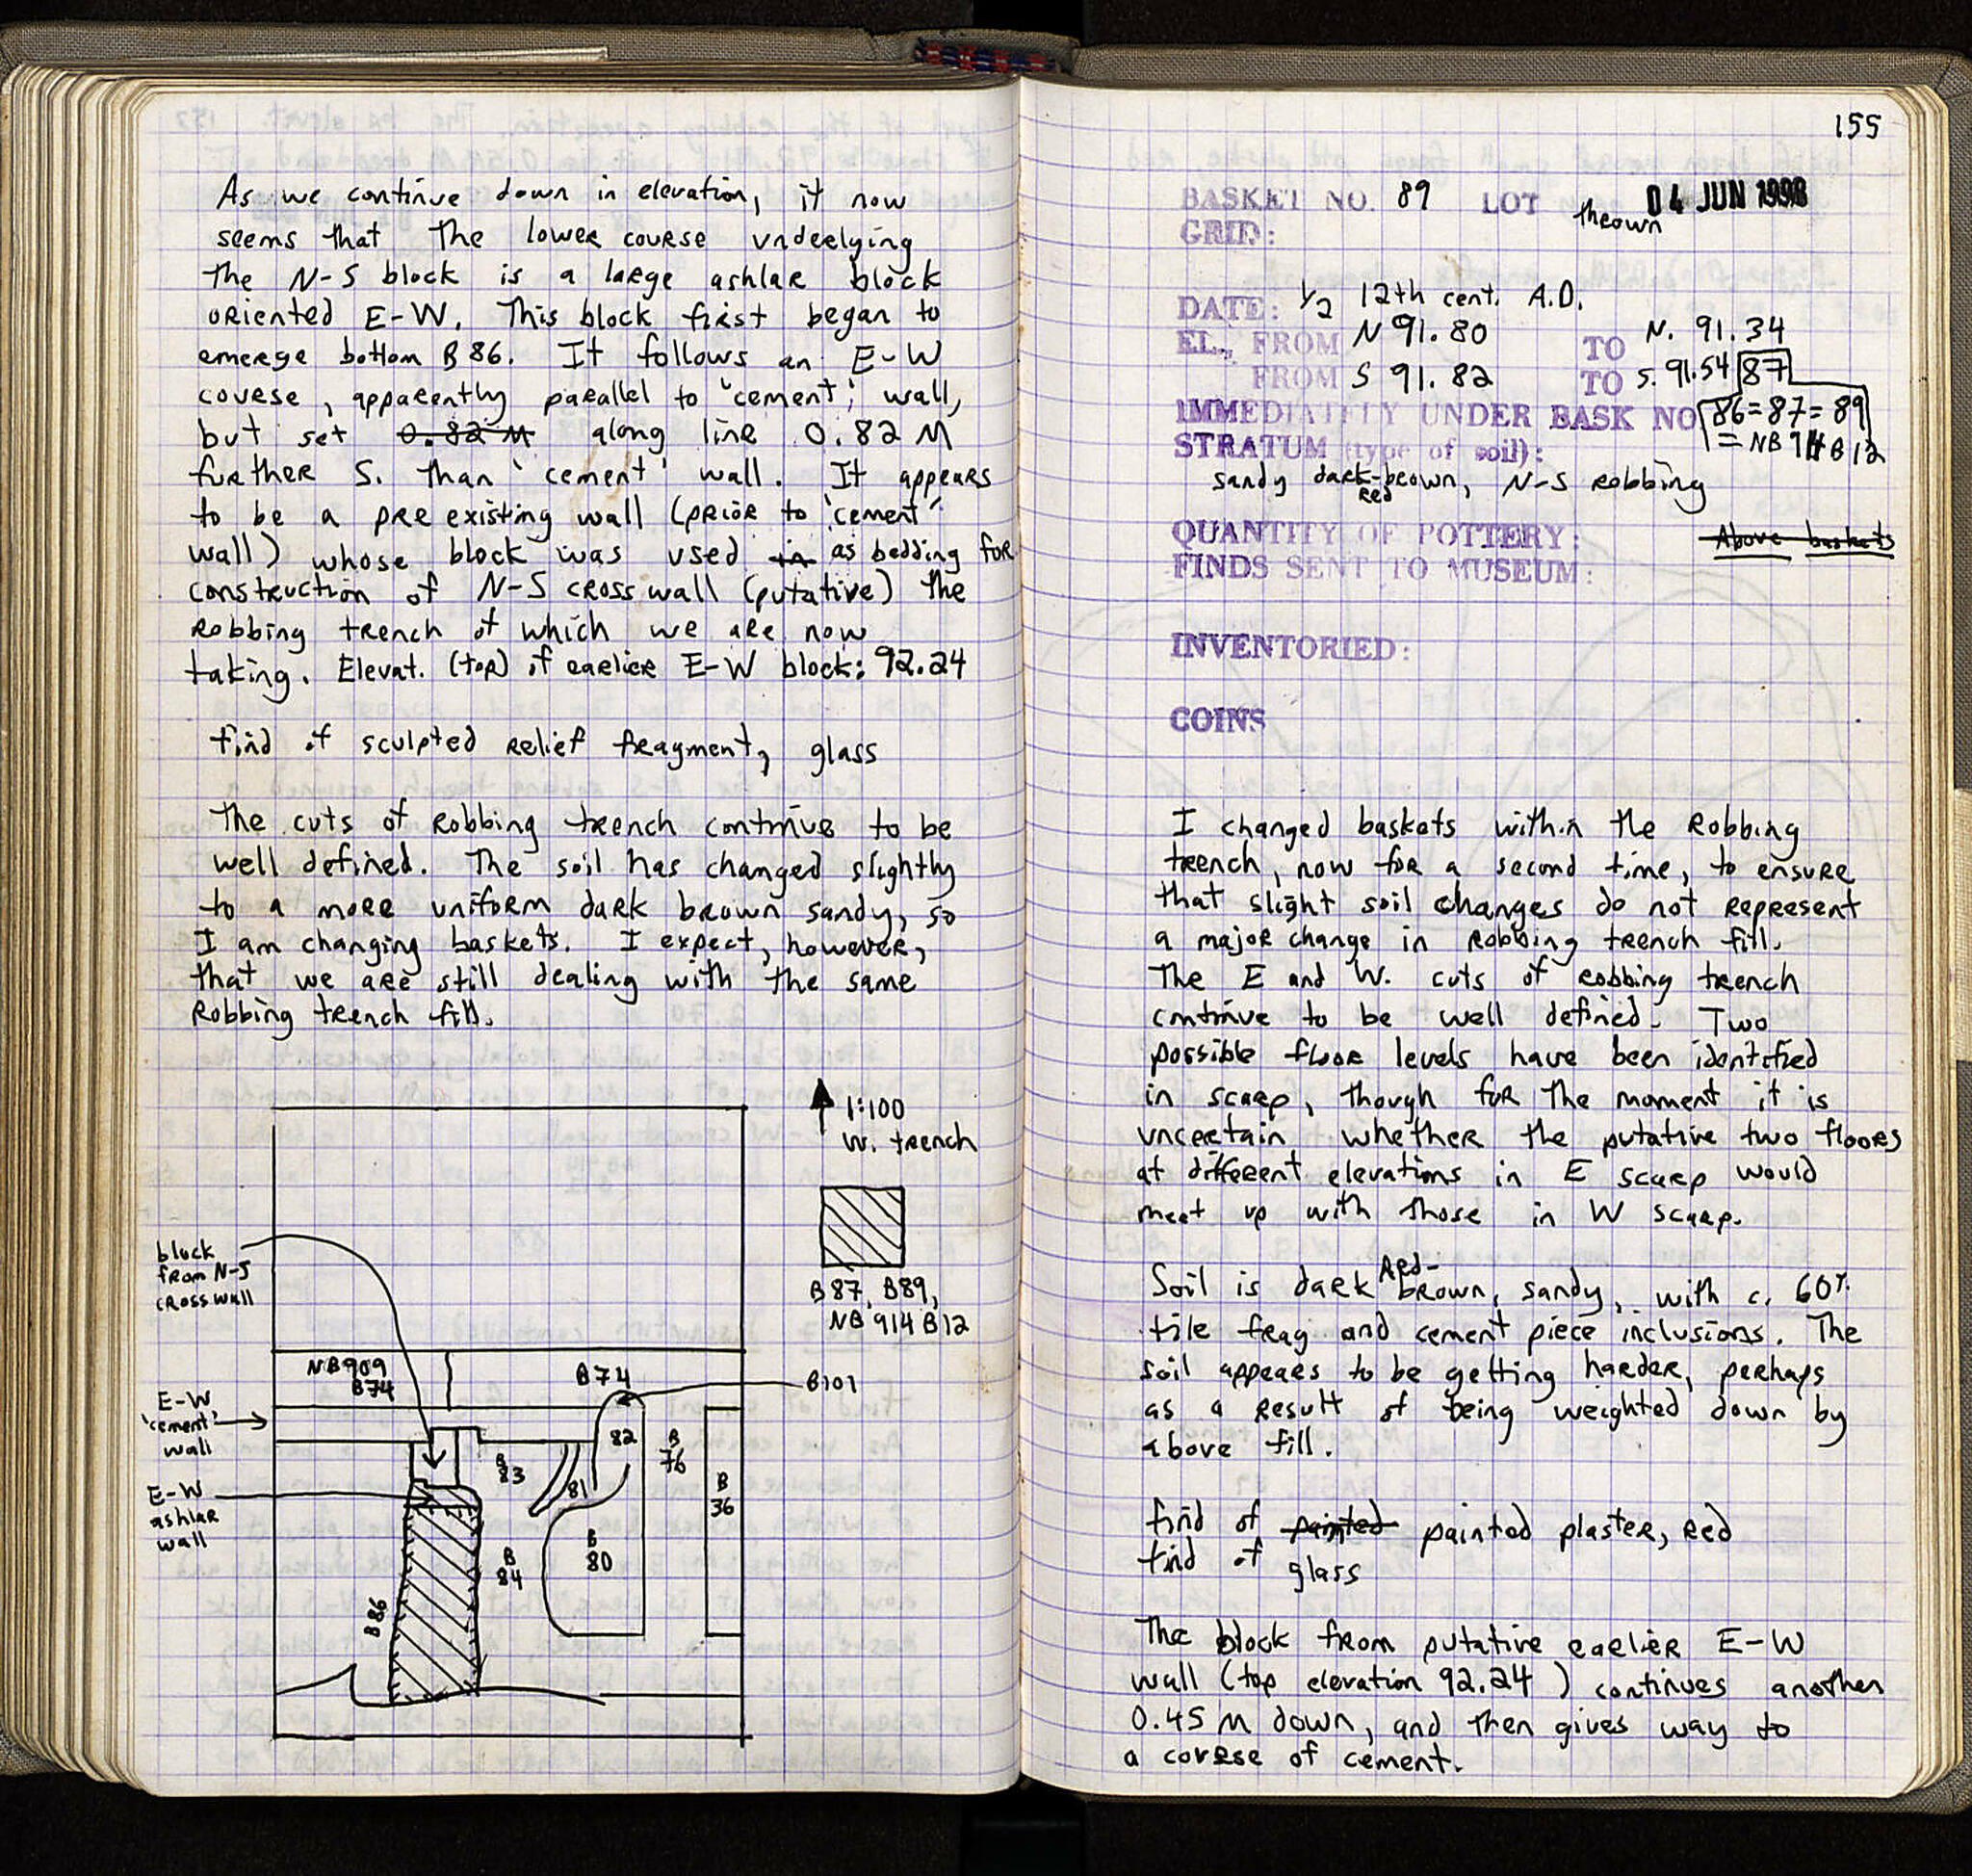 As we continue down in elevation, it now
seems that the lower course underlying
the N-S block is a large ashlar block
oriented E-W. This block first began to
emerge bottom B 86. It follows an E-W
course, apparently parallel to 'cement' wall,
but set 0.82 M along line 0.82 M
further S. than 'cement' wall. It appears
to be a preexisting wall (prior to 'cement'
wall) whose block was used in as bedding for
construction of N-S cross wall (putative) the
robbing trench of which we are now
taking. Elevat. (top) of earlier E-W block: 92.24
find of sculpted relief fragment, glass
The cuts of robbing trench continue to be
well defined. The soil has changed slightly
to a more uniform dark brown sandy, so
I am changing baskets. I expect, however,
that we are still dealing with the same
Robbing trench fill.
1:100
W. trench
B87, B89,
NB 914 B12
block
from N-S
cross wall
NB909
B74
B74
B101
E-W
'cement'
wall
E-W
ashlar
wall
B
83
81
82
B
76
B
36
B
84
B
80
B86
155
BASKET NO. 89 LOT thrown 04 JUN 1998
GRID:
DATE: 1/2 12th cent. A.D.
EL., FROM N 91.80 TO N. 91.34
FROM S 91.82 TO S. 91.54 87
IMMEDIATELY UNDER BASK NO 86=87=89
= NB 914 B12
STRATUM (type of soil):
sandy dark-red brown, N-S robbing
QUANTITY OF POTTERY: Above baskets
FINDS SENT TO MUSEUM:
INVENTORIED:
COINS
I changed baskets within the Robbing
trench, now for a second time, to ensure
that slight soil changes do not represent
a major change in robbing trench fill.
The E and W. cuts of robbing trench
continue to be well defined. Two
possible floor levels have been identified
in scarp, though for the moment it is
uncertain whether the putative two floors
at different elevations in E scarp would
meet up with those in W scarp.
Soil is dark Red-brown, sandy, with c. 60%
tile frag and cement piece inclusions. The
soil appears to be getting harder, perhaps
as a result of being weighted down by
above fill.
find of painted painted plaster, red
find of glass
The block from putative earlier E-W
wall (top elevation 92.24) continues another
0.45 M down, and then gives way to
a corse of cement.